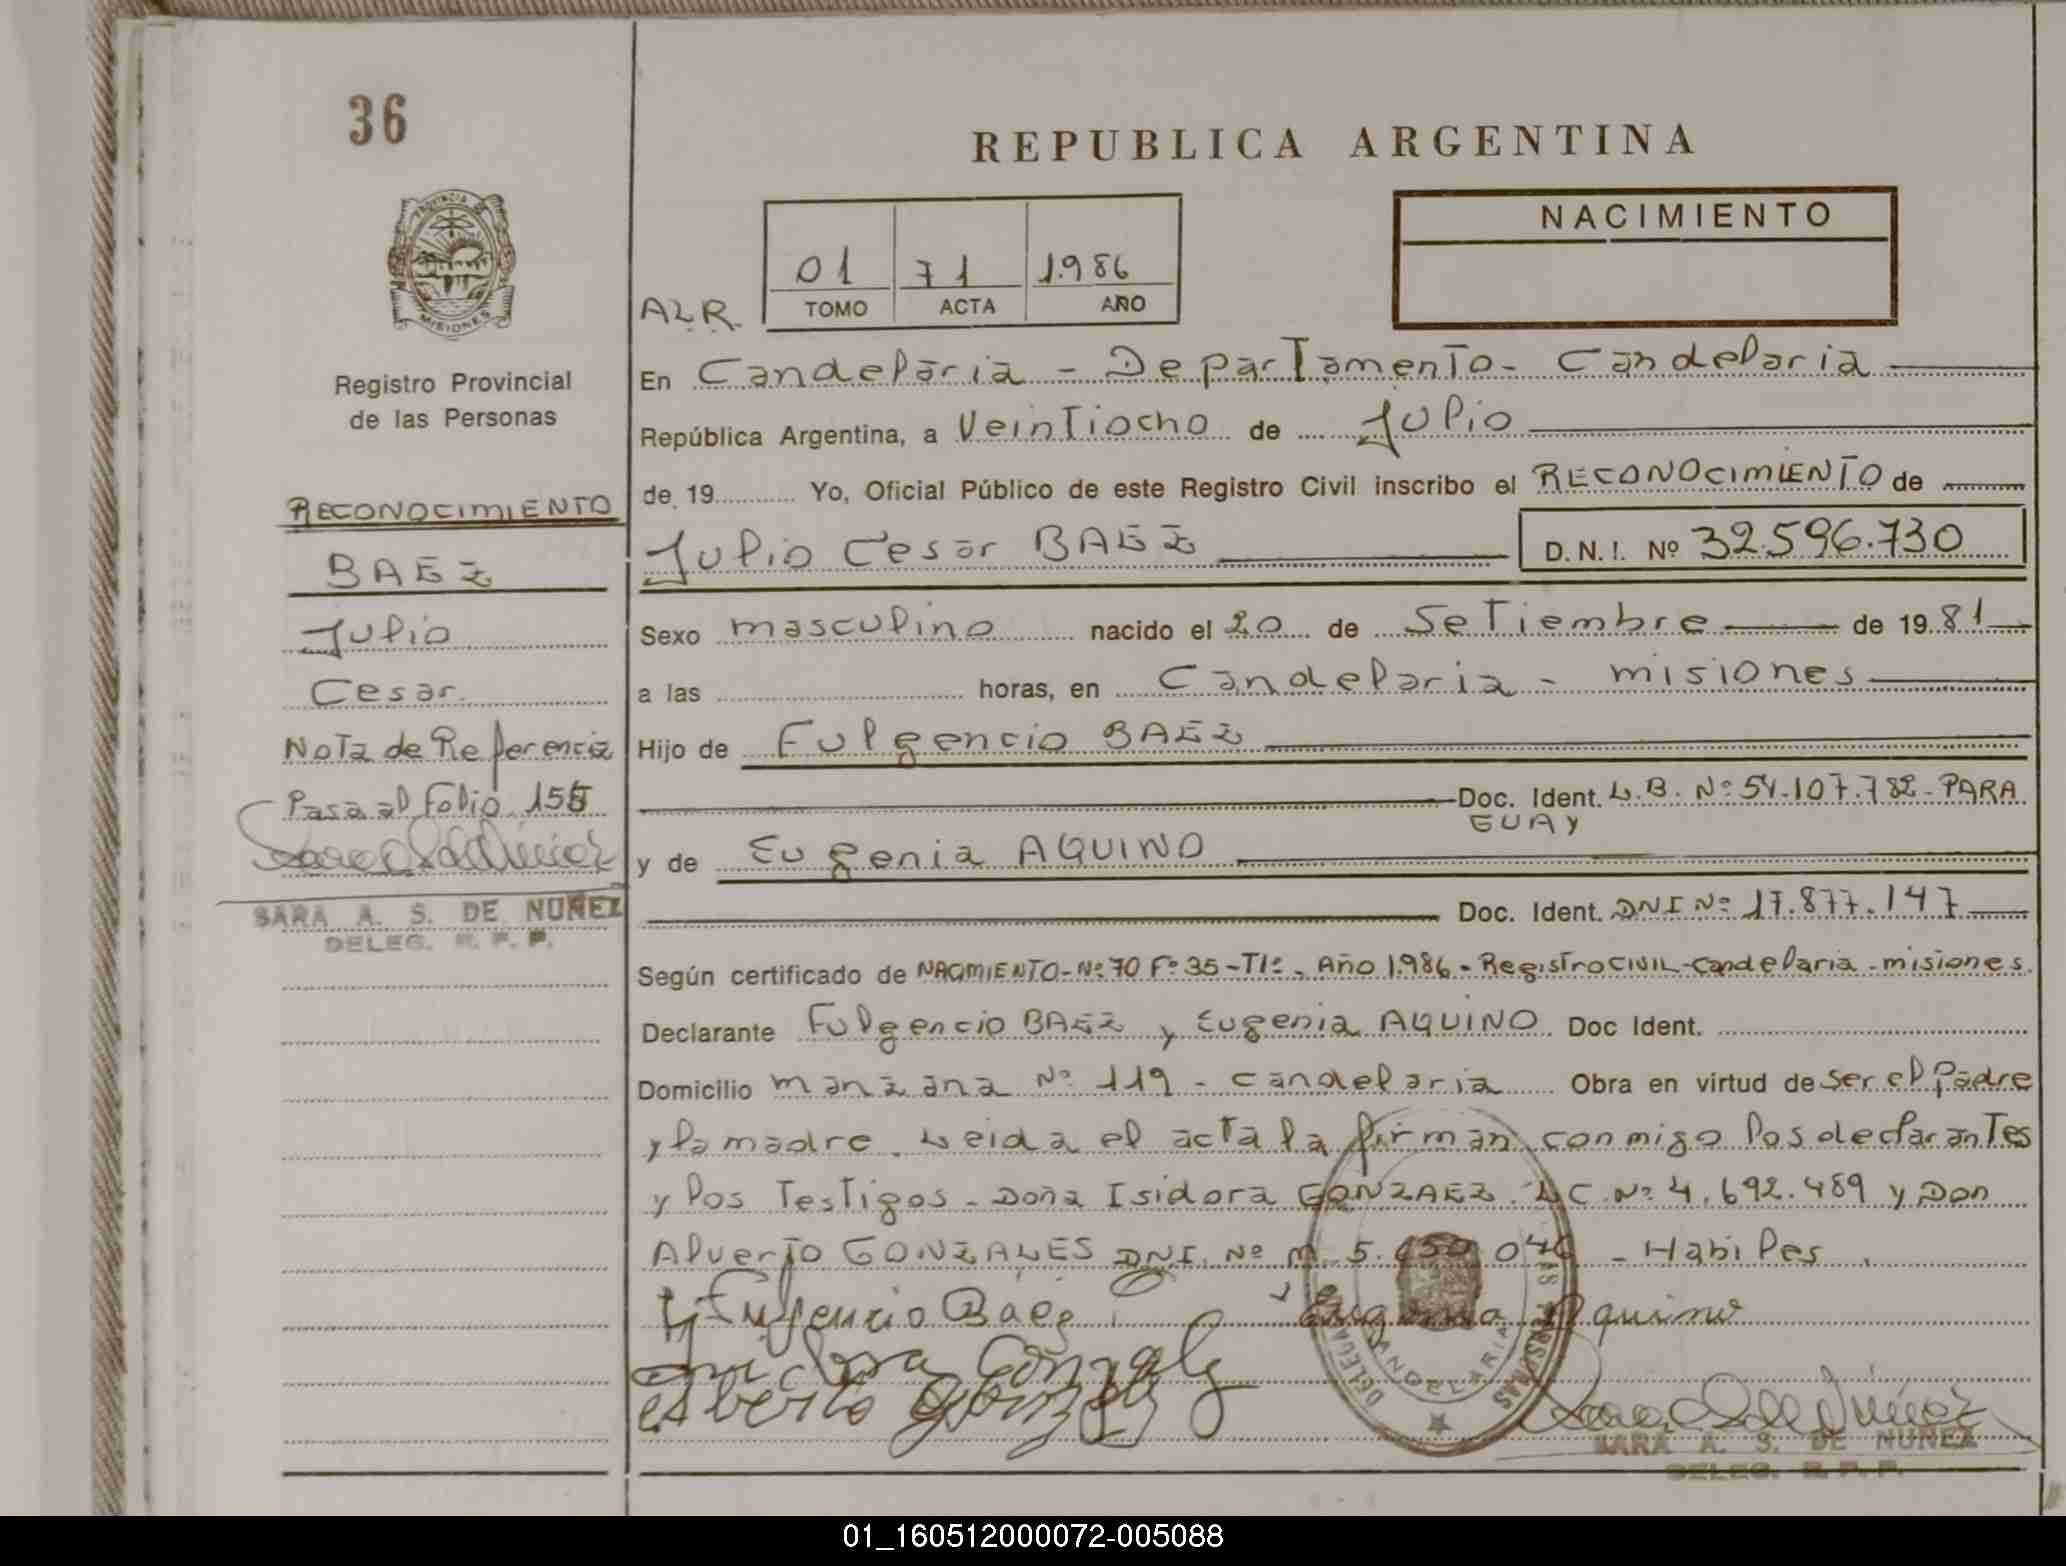 36
REPUBLICA ARGENTINA
PROVINCIA DE
MISIONES
Registro Provincial
de las Personas
RECONOCIMIENTO
BAEZ
Julio
Cesar.
Nota de Referencia
Pasa al Folio 155
SARA A. S. DE NUÑEZ
DELEG. R. P. P.
NACIMIENTO
01 71 1.986
TOMO ACTA AÑO
A L R.
En Candelaria - Departamento - Candelaria
República Argentina, a Veintiocho de Julio
de 19 Yo, Oficial Público de este Registro Civil inscribo el RECONOCIMIENTO de
Julio Cesar BAEZ D.N.I. Nº 32.596.730
Sexo masculino nacido el 20 de Setiembre de 1981
a las horas, en Candelaria - misiones
Hijo de Fulgencio BAEZ
Doc. Ident. L.B. Nº 54.107.782 - PARA
GUAY
y de Eugenia AQUINO
Doc. Ident. DNI Nº 17.877.147
Según certificado de NACIMIENTO - Nº 70 Fº 35 - T1º - Año 1.986 - Registro CIVIL - Candelaria - misiones.
Declarante Fulgencio BAEZ y Eugenia AQUINO Doc Ident.
Domicilio manzana Nº 119 - candelaria Obra en virtud de ser el Padre
y la madre. Leida el acta la firman conmigo los declarantes
y los Testigos - Doña Isidora GONZAEZ. LC. Nº 4.692.489 y Don
Alverto GONZALES DNI. Nº M 5. 046 - Habiles.
Fulgencio Baez Eugenia Aquino
Isidora Gonzalez
alberto Gonzalez
CANDELARIA
SARA A. S. DE NUÑEZ
DELEG. R. P. P.
01_160512000072-005088